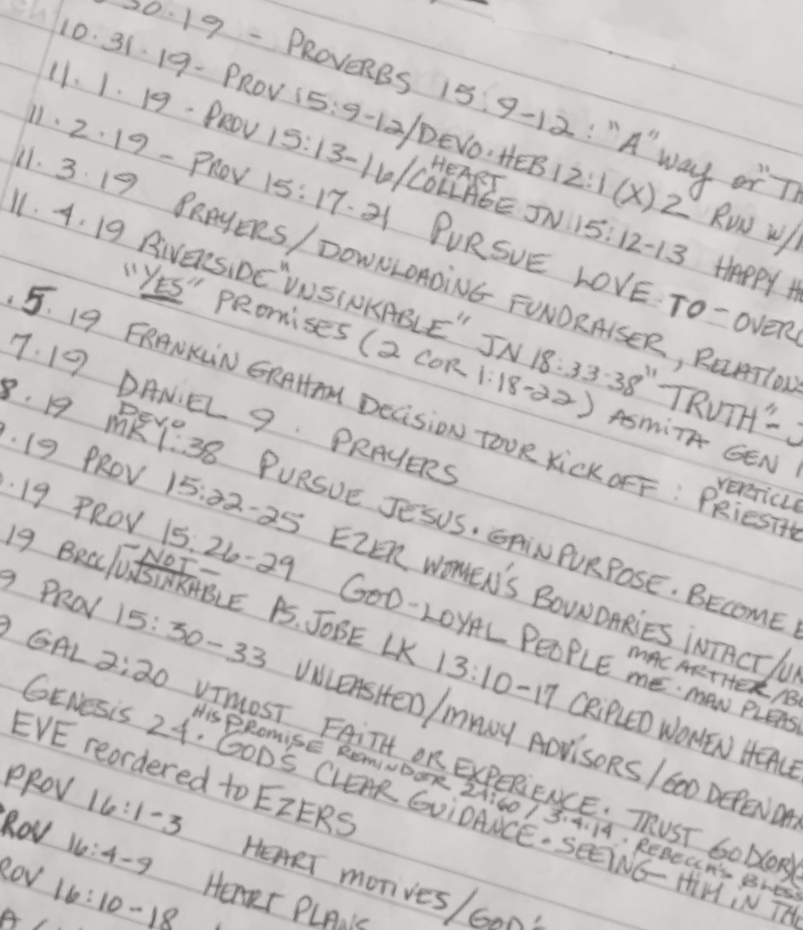 30.19 - PROVERBS 15:9-12: "A" way or "TH
10.31.19- PROV 15:9-12/DEVO.HEB 12:1 (X) 2 RUN W/
11.1.19 - PROV 15:13-16/COLLAGE JN 15:12-13 HAPPY H
HEART
11.2.19 - PROV 15:17-21 PURSUE LOVE TO - OVERC
11.3.19 PRAYERS/DOWNLOADING FUNDRAISER, RELATIONS
11.4.19 RIVERSIDE "UNSINKABLE" JN 18:33-38 "TRUTH" - J
"YES" PROMISES (2 COR 1:18-22) ASMITA GEN 1
.5.19 FRANKLIN GRAHAM DECISION TOUR KICK OFF : PRIESTHO
VERTICLE
7.19 DANIEL 9. PRAYERS
8.19 MK 1:38 PURSUE JESUS. GAIN PURPOSE. BECOME E
DEVO
9.19 PROV 15:22-25 EZER WOMEN'S BOUNDARIES INTACT/UN
0.19 PROV 15:26-29 GOD-LOYAL PEOPLE ME-MAN PLEASI
MACARTHER/BO
19 BRCC/UNSINKABLE PS. JOBE LK 13:10-17 CRIPLED WOMEN HEALE
-NOT-
9 PROV 15:30-33 UNLEASHED/MANY ADVISORS/GOD DEPENDAN
9 GAL 2:20 UTMOST FAITH OR EXPERIENCE. TRUST GOD(OR)
HIS PROMISE REMINDOR 24:60/3.4.14. REBECCA'S BLESS
GENESIS 24. GOD'S CLEAR GUIDANCE. SEEING HIM IN THE
EVE reordered to EZERS
PROV 16:1-3 HEART MOTIVES/GOD'S
PROV 16:4-9 HEART PLANS
PROV 16:10-18